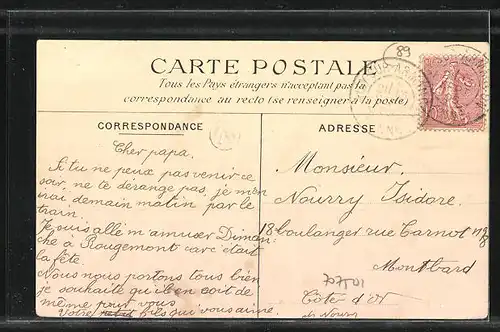 89
CARTE POSTALE
Tous les Pays étrangers n'acceptant pas la
correspondance au recto (se renseigner à la poste)
CORRESPONDANCE
ADRESSE
Cher papa.
Si tu ne peux pas venir ce
soir, ne te dérange pas, je m'en
irai demain matin par le
train.
Je suis allé m'amuser Diman-
che à Rougemont car c'était
la fête.
Nous nous portons tous bien
je souhaite qu'il en soit de
même pour vous
Votre fils qui vous aime.
Monsieur.
Nourry Isidore.
boulanger rue Carnot
Montbard
Côte d'Or
N. Nourry